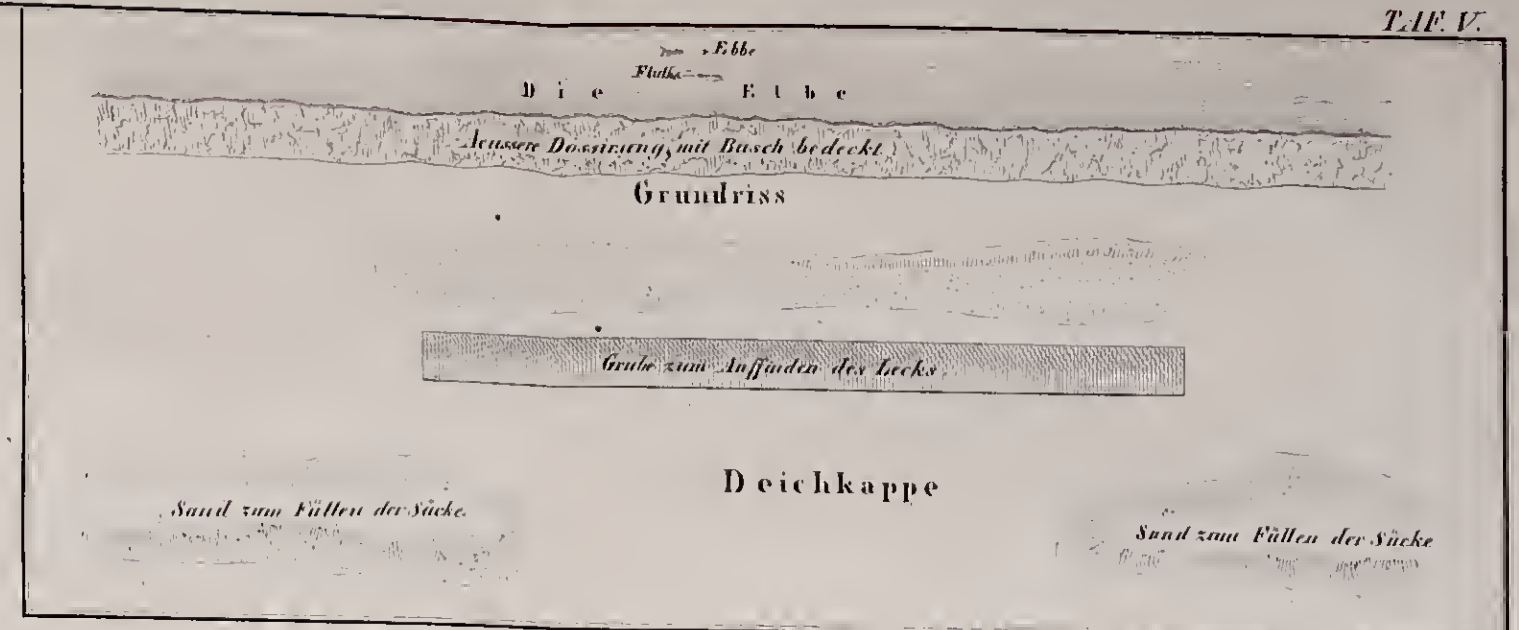 TAF. V.
Ebbe
Fluthe
Die Elbe
Aeussere Dossirung, mit Busch bedeckt.
Grundriss
Grube zum Auffinden des Lecks.
Deichkappe
Sand zum Füllen der Säcke.
Sand zum Füllen der Säcke